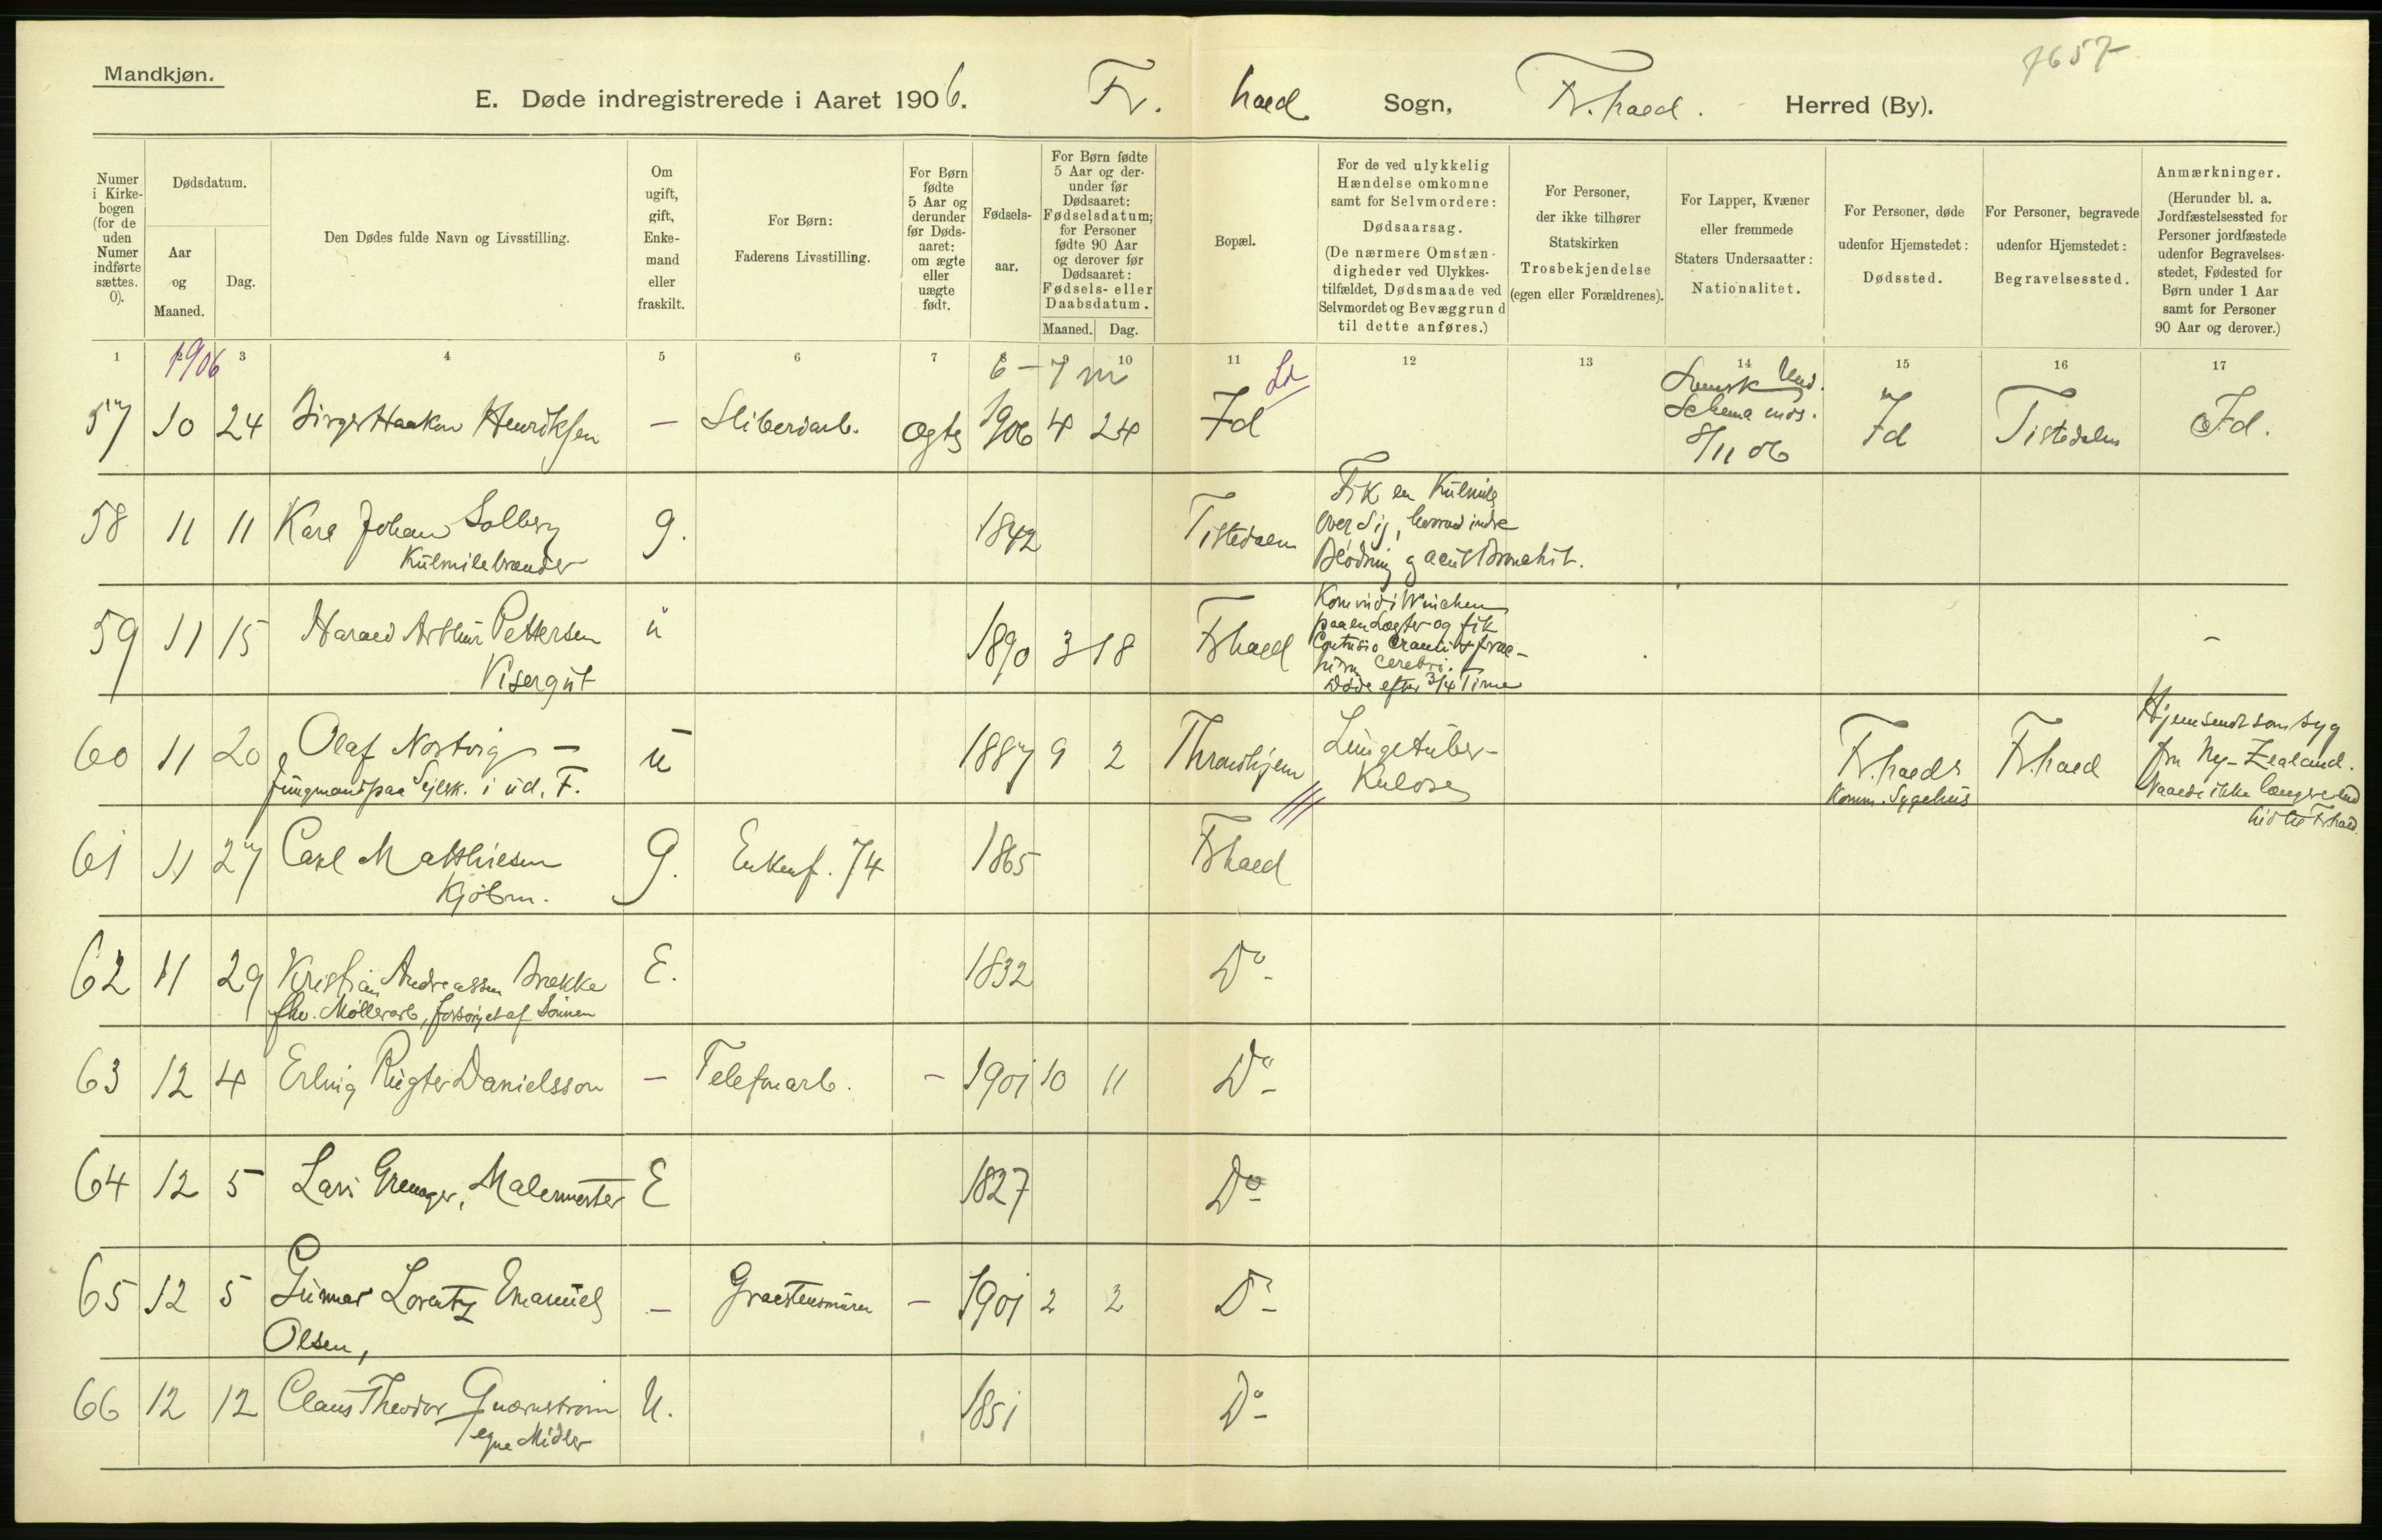 7657
Mandkjøn.
E. Døde indregistrerede i Aaret 1906. Fr. hald Sogn, Fr. hald. Herred (By).
Numer i Kirke-bogen (for de uden Numer indførte sættes. 0).
Dødsdatum.
Aar og Maaned.
Dag.
Den Dødes fulde Navn og Livsstilling.
Om ugift, gift, Enke-mand eller fraskilt.
For Børn:
Faderens Livsstilling.
For Børn fødte 5 Aar og derunder før Døds-aaret: om ægte eller uægte født.
Fødsels-aar.
For Børn fødte 5 Aar og der-under før Dødsaaret: Fødselsdatum; for Personer fødte 90 Aar og derover før Dødsaaret: Fødsels- eller Daabsdatum.
Maaned. Dag.
Bopæl.
For de ved ulykkelig Hændelse omkomne samt for Selvmordere:
Dødsaarsag.
(De nærmere Omstæn-digheder ved Ulykkes-tilfældet, Dødsmaade ved Selvmordet og Bevæggrund til dette anføres.)
For Personer, der ikke tilhører Statskirken
Trosbekjendelse
(egen eller Forældrenes).
For Lapper, Kvæner eller fremmede Staters Undersaatter:
Nationalitet.
For Personer, døde udenfor Hjemstedet:
Dødssted.
For Personer, begravede udenfor Hjemstedet:
Begravelsessted.
Anmærkninger.
(Herunder bl. a. Jordfæstelsessted for Personer jordfæstede udenfor Begravelses-stedet, Fødested for Børn under 1 Aar samt for Personer 90 Aar og derover.)
1 2 3 4 5 6 7 8 9 10 11 12 13 14 15 16 17
1906 6 - 7 m
Svensk Und.
Schema inds.
8/11 06
57 10 24 Birger Haakon Henriksen — Sliberiarb. Ægte 1906 4 24 Id Id Tistedalen Id.
58 11 11 Karl Johan Solberg g. 1842 Tistedalen
Kulmilebrænder
Fik en Kulmile
over sig, hvorved indre
Blødning og acut Bronchit.
59 11 15 Harald Arthur Pettersen u 1890 3 18 Frhald
Visergut
Kom ind i Winchen
paa en Lægter og fik
Contusio Cranii &
cerebri.
Døde efter 3/4 Time
60 11 20 Olaf Nostvig — u 1887 9 2 Throndhjem
Jungmand paa Sejlsk. i ud. F.
Lungetuber-
kulose
Fr.halds
Komm. Sygehus
Fr.hald
Hjemsendt som syg
fra Ny-Zealand.
Naaede ikke længere end
hid til Frhald.
61 11 27 Carl Matthiesen G. Enkef. 74 1865 Frhald
Kjøbm.
62 11 29 Kristian Andreassen Brekke E. 1832 Do -
fhv. Møllerarb, forsørjet af Sønnen
63 12 4 Erling Rugter Danielsson — Telefonarb. — 1901 10 11 Do -
64 12 5 Lars Grenager, Malermester E 1827 Do -
65 12 5 Gunnar Lorentz Emanuel — Graastensmurer — 1901 2 2 Do -
Olsen,
66 12 12 Claus Theodor Qværnstrøm U. 1851 Do -
egne Midler